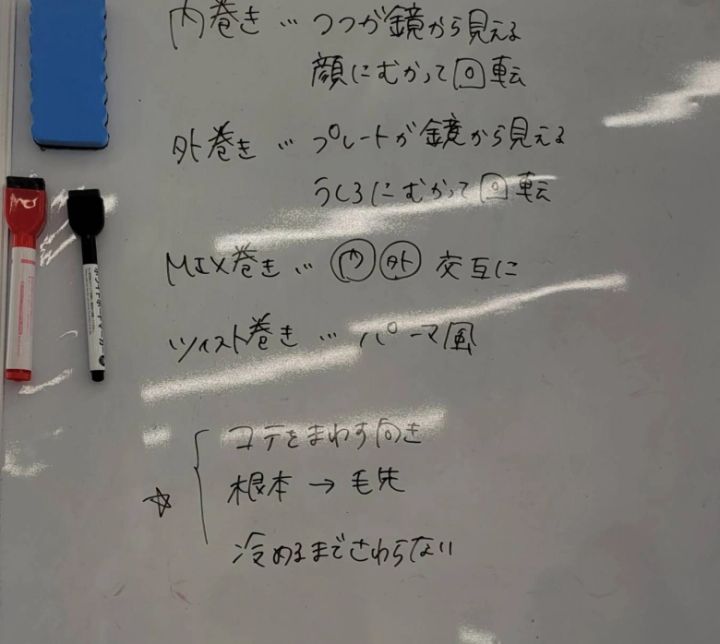 内巻き … つつが鏡から見える
顔にむかって回転
外巻き … プレートが鏡から見える
うしろにむかって回転
MIX巻き … 内 外 交互に
ツイスト巻き … パーマ風
コテをまわす向き
☆ 根本 → 毛先
冷めるまでさわらない